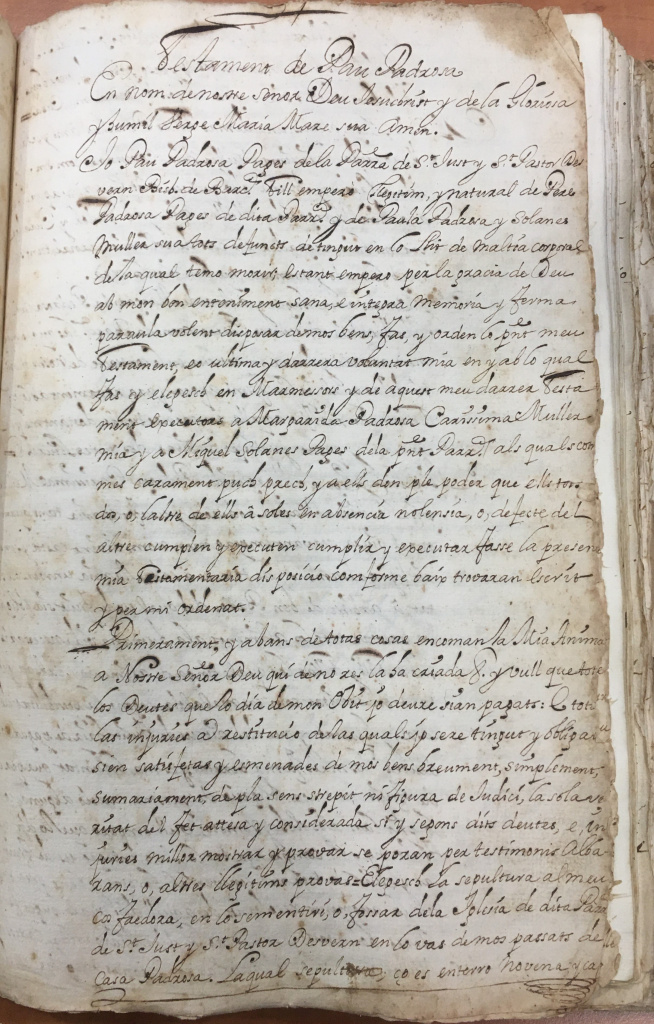 Testament de Pau Padrosa
En nom de nostre Señor Deu Jesuchrist y de la Gloriosa
y humil Verge Maria Mare sua Amen.
Jo Pau Padrosa Pages de la Parra de St. Just y St. Pastor Des
vern Bisb. de Barca fill empero llegitim, y natural de Pere
Padrosa Pages de dita Parra y de Paula Padrosa y Solanes
Muller sua fats defuncts detingut en lo llit de maltia corporal
de la qual temo morir Estant empero per la gracia de Deu
ab mon bon enteniment sana, e integra memoria y ferma
paraula volent disposar de mos bens, fas, y orden lo pnt meu
Testament, eo ultima y darrera voluntat mia en y ab lo qual
fas y elegesch en Marmessors y de aquest meu darrer Testa
ment executors a Margarida Padrosa Carissima Muller
mia y a Miquel Solanes Pages de la pnt Parra als quals con
mes carament puch prech, y a ells don ple poder que ells tots
dos, o, laltre de ells â soles en absencia nolensia, o, defecte del
altre cumplen y executen cumplir y executar fasse la present
mia Testamentaria disposicio comforme baix trovaran Escrit
y per mi ordenat.
Primerament, y abans de totas cosas encoman la Mia Anima
a Nostre Señor Deu qui de no res la ha criada &. y vull que tots
los Deutes que lo dia de mon Obit jo deure sian pagats: E totas
las injurias a restitucio de las quals jo sere tingut y obligat
sien satisfetas y esmenades de mos bens breument, simplement,
sumariament, de pla sens strepit ni figura de Judici, la sola ve
ritat del fet attesa y considerada si y segons dits deutes, e, in
juries millor mostrar y provar se poran per testimonis Alba
rans, o, altres llegitims provas = Elegesch la sepultura al meu
cos faedora, en lo sementiri, o, fossar de la Iglesia de dita Parra
de St. Just y St. Pastor Desvern en lo vas de mos passats de
Casa Padrosa. La qual sepultura, ço es enterro novena y cap